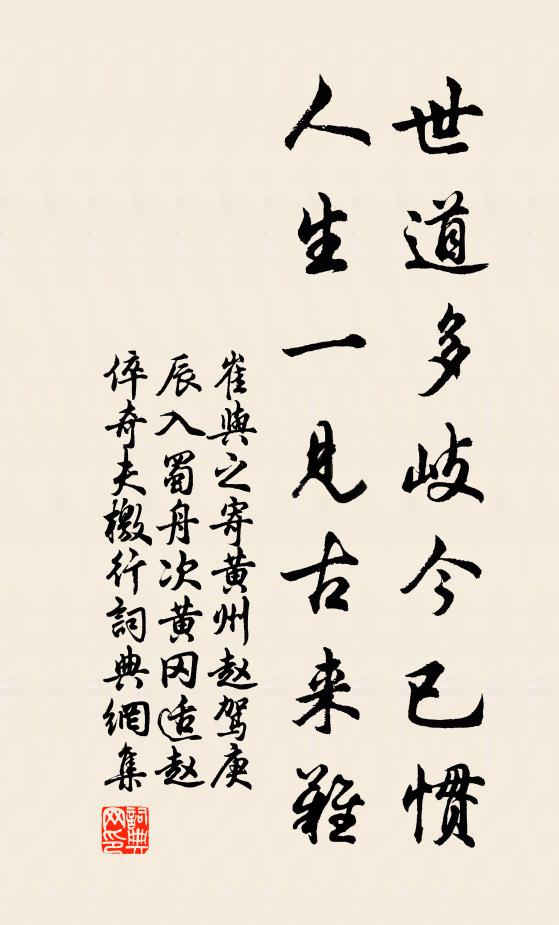 世道多歧今已惯
人生一见古来难
崔與之寄黄州赵驾庚
辰入蜀舟次黄冈适赵
倅奇夫檄行詞典網集
詞典網印